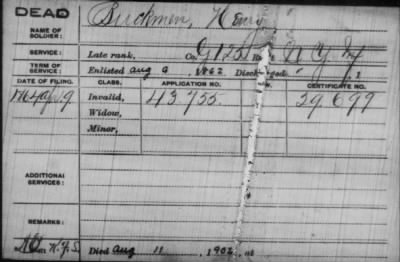 DEAD
NAME OF SOLDIER:
Buckmen, Henry
SERVICE:
Late rank, Co. G 125 Reg't N Y Inf
TERM OF SERVICE:
Enlisted Aug 9, 1862 Discharged , 1
DATE OF FILING. CLASS. APPLICATION NO. CERTIFICATE NO.
1864 Invalid, 43755 29699
Widow,
Minor,
ADDITIONAL SERVICES:
REMARKS:
N.Y.S. Died Aug 11, 1902, at